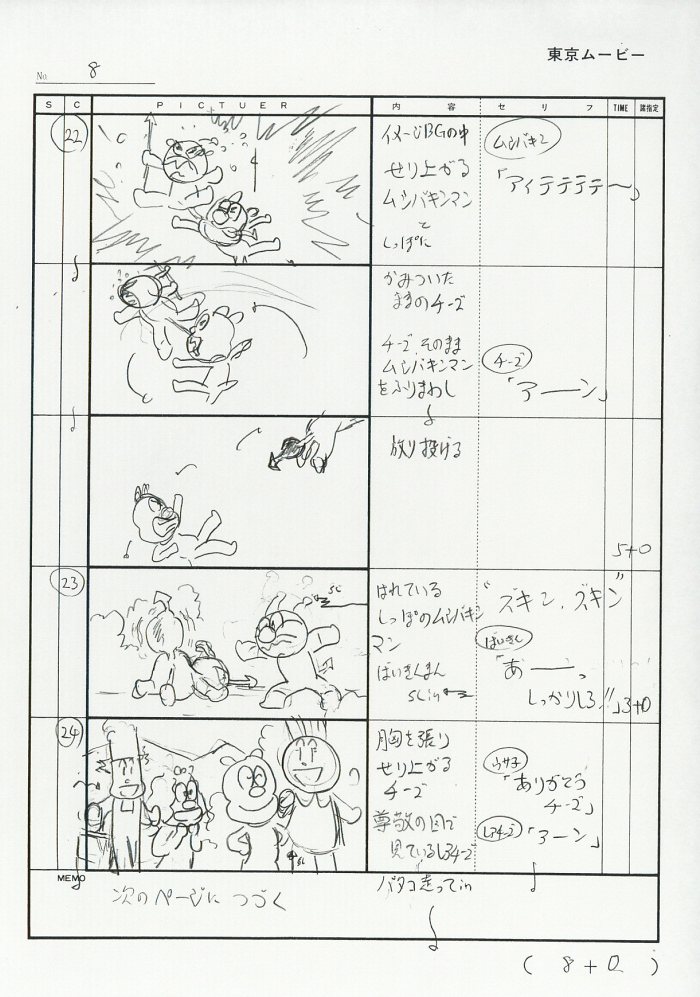 東京ムービー
No. 8
S C PICTUER 内容 セリフ TIME 諸指定
22
イメージBGの中
せり上がる
ムシバキンマン
と
しっぽに
ムシバキン
「アイテテテテ〜」
かみついた
ままのチーズ
チーズ、そのまま
ムシバキンマン
をふりまわし
チーズ
「アーン」
放り投げる
5+0
23
SL
はれている
しっぽのムシバキン
マン
ばいきんまん
SLin
"ズキン、ズキン"
ばいきん
「あーっ
しっかりしろ!!」
3+0
24
SL
胸を張り
せり上がる
チーズ
尊敬の目で
見ているレアチーズ
バタコ走ってin
ウサ子
「ありがとう
チーズ」
レアチーズ
「アーン」
MEMO
次のページに つづく
( 8+0 )